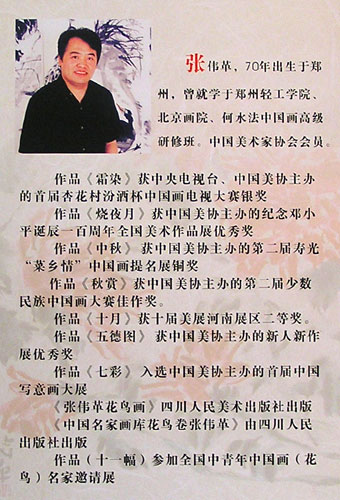 张伟革,70年出生于郑
州,曾就学于郑州轻工学院、
北京画院、何水法中国画高级
研修班。中国美术家协会会员。
作品《霜染》获中央电视台、中国美协主办
的首届杏花村汾酒杯中国画电视大赛银奖
作品《烧夜月》获中国美协主办的纪念邓小
平诞辰一百周年全国美术作品展优秀奖
作品《中秋》获中国美协主办的第二届寿光
“菜乡情”中国画提名展铜奖
作品《秋赏》获中国美协主办的第二届少数
民族中国画大赛佳作奖。
作品《十月》获十届美展河南展区二等奖。
作品《五德图》获中国美协主办的新人新作
展优秀奖
作品《七彩》入选中国美协主办的首届中国
写意画大展
《张伟革花鸟画》四川人民美术出版社出版
《中国名家画库花鸟卷张伟革》由四川人民
出版社出版
作品(十一幅)参加全国中青年中国画(花
鸟)名家邀请展